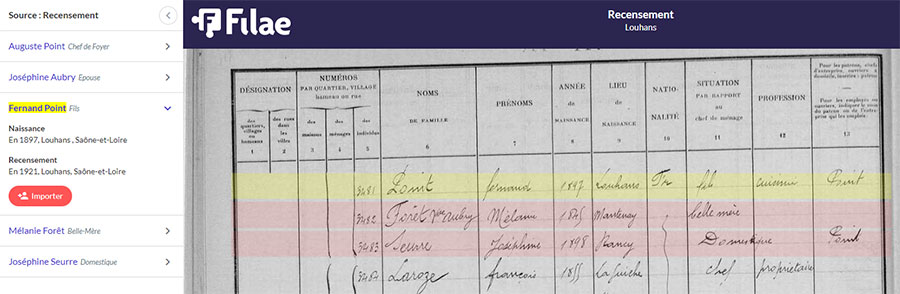 Source : Recensement
Auguste Point Chef de Foyer
Joséphine Aubry Epouse
Fernand Point Fils
Naissance
En 1897, Louhans , Saône-et-Loire
Recensement
En 1921, Louhans, Saône-et-Loire
Importer
Mélanie Forêt Belle-Mère
Joséphine Seurre Domestique
Filae
Recensement
Louhans
DÉSIGNATION
des quartiers, villages ou hameaux
1
des rues dans les villes
2
NUMÉROS
PAR QUARTIER, VILLAGE
hameau ou rue
des maisons
3
des ménages
4
des individus
5
NOMS
DE FAMILLE
6
PRÉNOMS
7
ANNÉE
de
NAISSANCE
8
LIEU
de
NAISSANCE
9
NATIO-
NALITÉ
10
SITUATION
PAR RAPPORT
au
chef de ménage
11
PROFESSION
12
Pour les patrons, chefs
d'entreprise, ouvriers à
domicile, inscrire : patron
Pour les employés ou
ouvriers, indiquer le nom
du patron ou de l'entre-
prise qui les emploie.
13
3481 Point fernand 1897 Louhans Fr fils cuisinier Point
3482 Forêt Vve Aubry Mélanie 1845 Mantenay belle mère
3483 Seurre Joséphine 1898 Nancy Domestique Point
3484 Laroze françois 1855 La guiche chef propriétaire